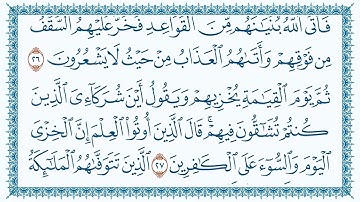 فَأَتَى ٱللَّهُ بُنْيَٰنَهُم مِّنَ ٱلْقَوَاعِدِ فَخَرَّ عَلَيْهِمُ ٱلسَّقْفُ
مِن فَوْقِهِمْ وَأَتَىٰهُمُ ٱلْعَذَابُ مِنْ حَيْثُ لَا يَشْعُرُونَ ٢٦
ثُمَّ يَوْمَ ٱلْقِيَٰمَةِ يُخْزِيهِمْ وَيَقُولُ أَيْنَ شُرَكَآءِىَ ٱلَّذِينَ
كُنتُمْ تُشَٰٓقُّونَ فِيهِمْ ۚ قَالَ ٱلَّذِينَ أُوتُوا۟ ٱلْعِلْمَ إِنَّ ٱلْخِزْىَ
ٱلْيَوْمَ وَٱلسُّوٓءَ عَلَى ٱلْكَٰفِرِينَ ٢٧ ٱلَّذِينَ تَتَوَفَّىٰهُمُ ٱلْمَلَٰٓئِكَةُ